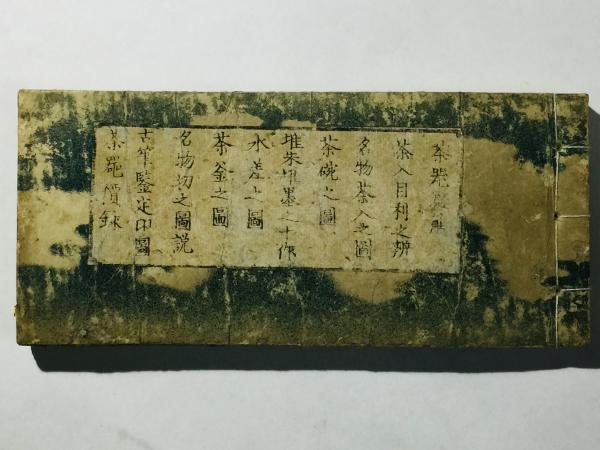 茶入目利之辨
名物茶入之圖
茶碗之圖
堆朱堆墨之作
水差之圖
茶釜之圖
名物切之圖説
古筆鑒定印圖
茶器價録